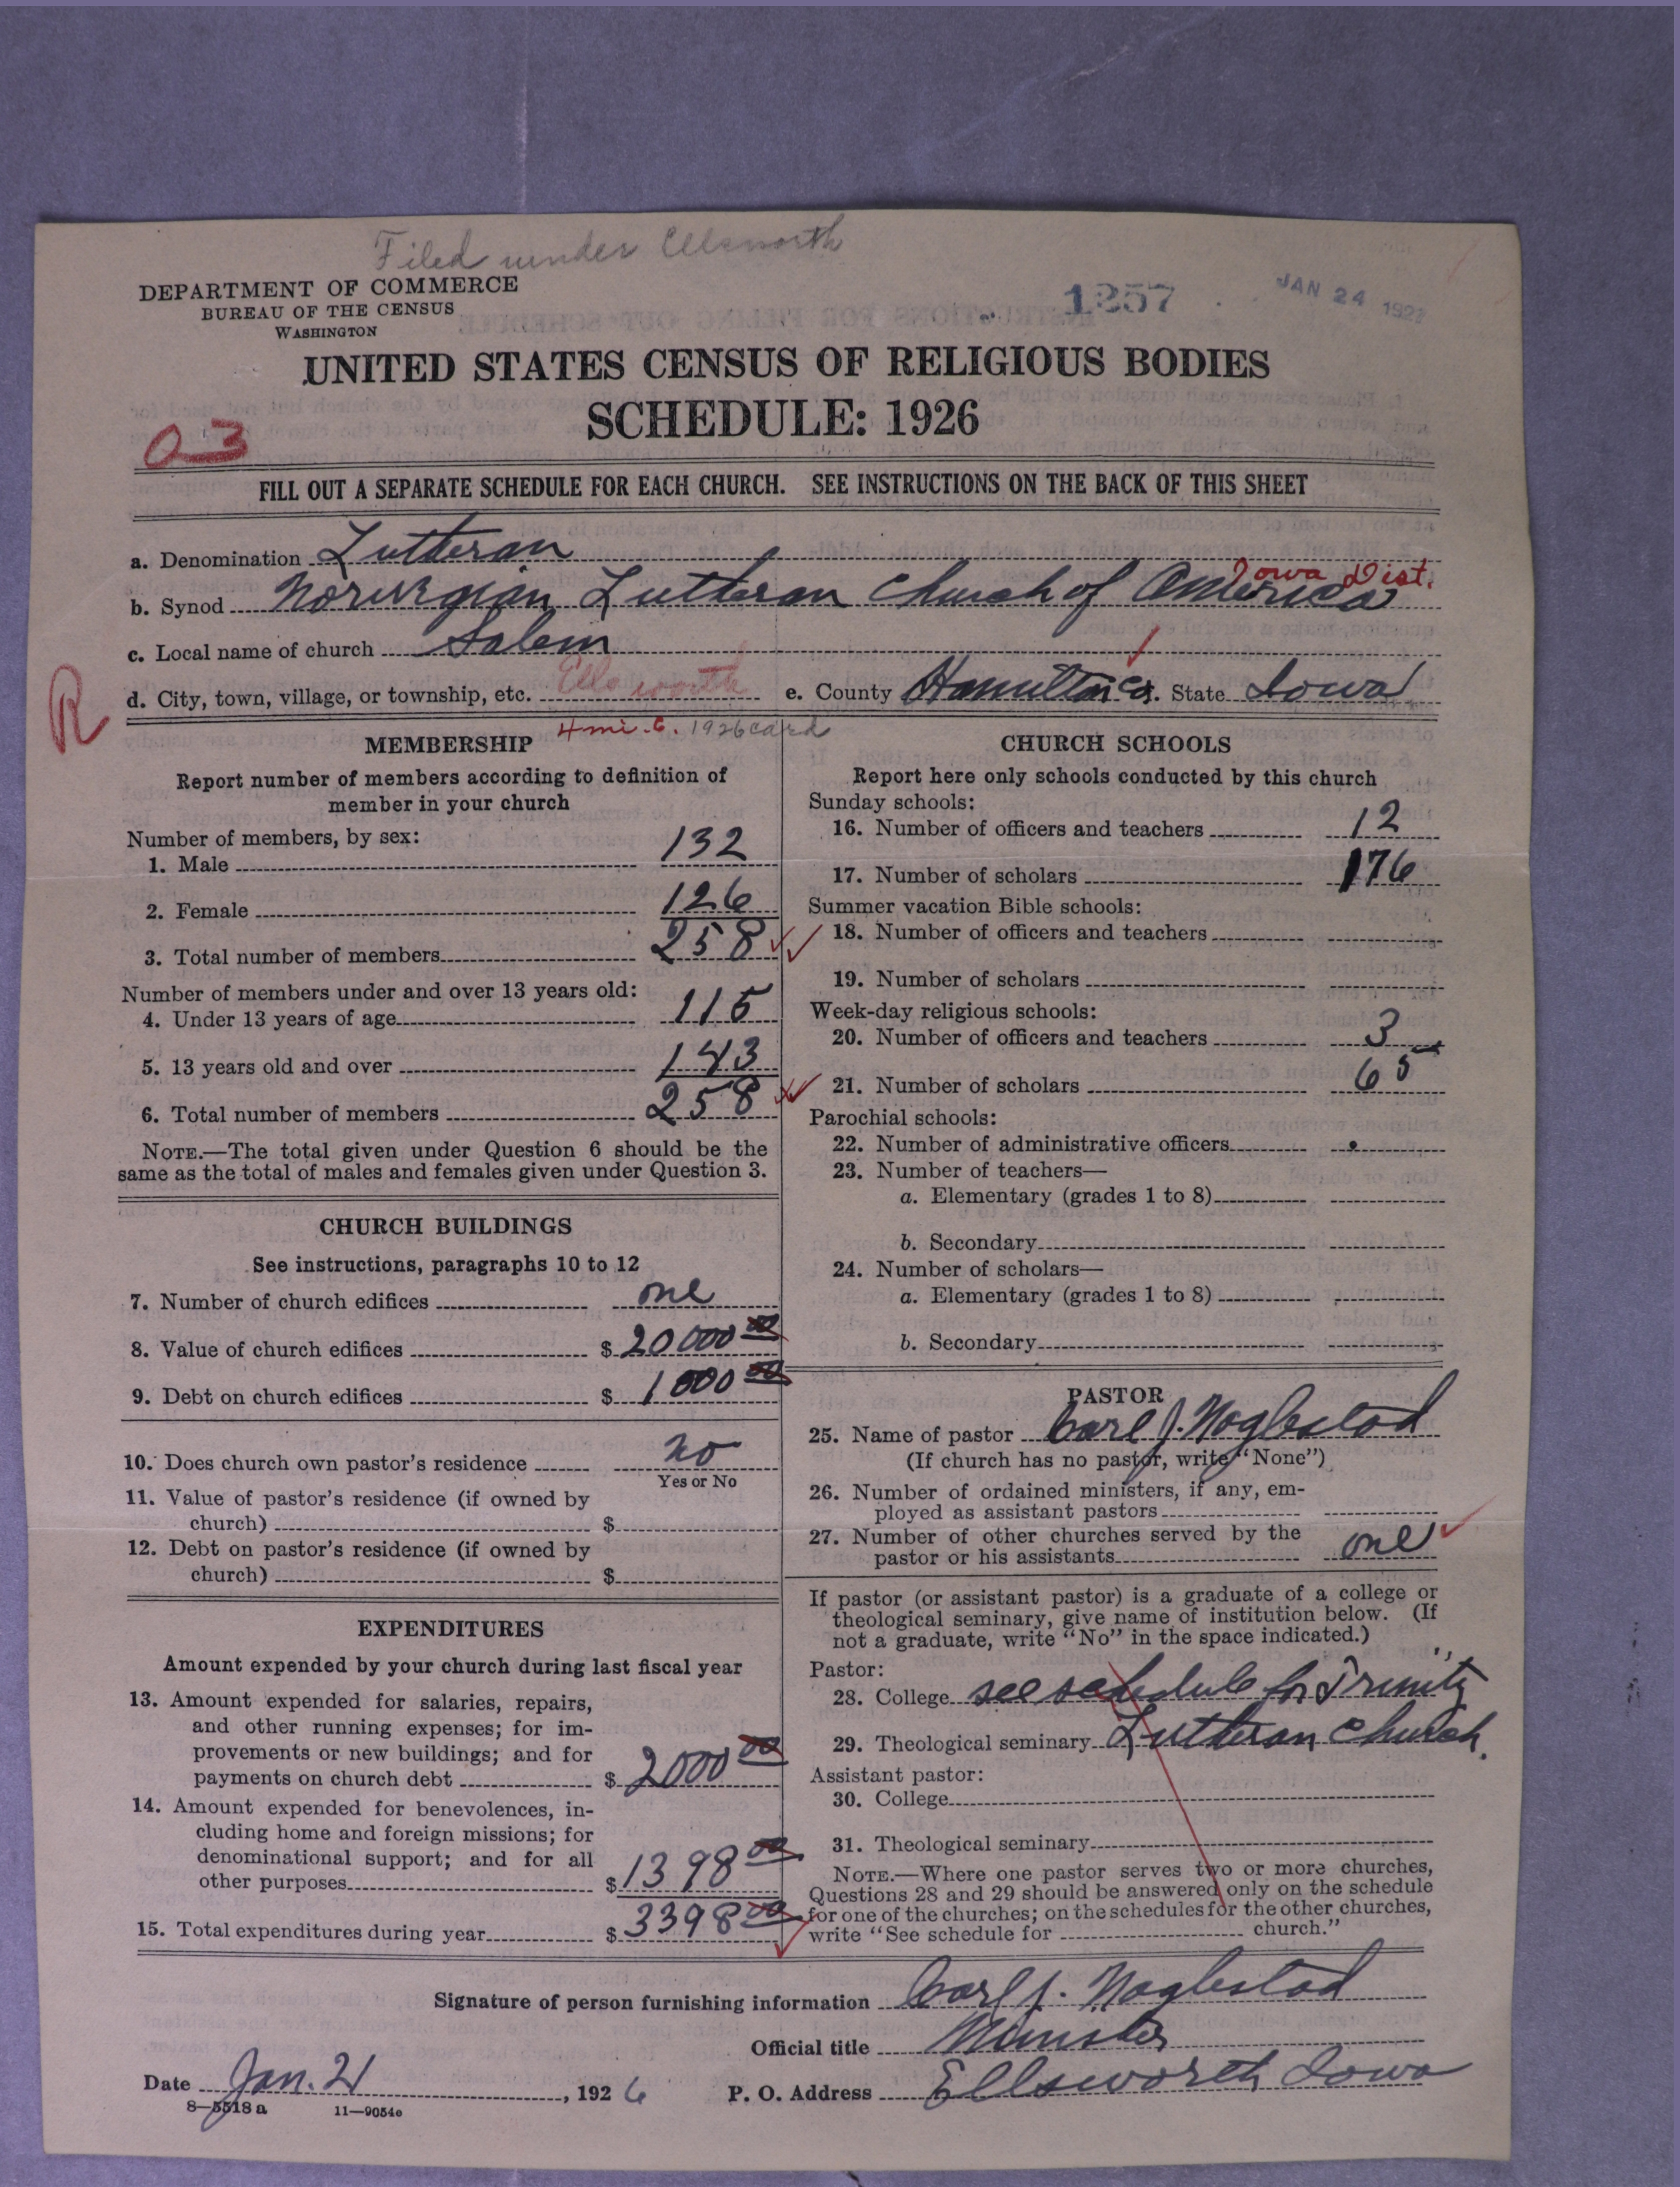 Filed under Ellsworth
DEPARTMENT OF COMMERCE
BUREAU OF THE CENSUS
WASHINGTON
1257
JAN 24 192
UNITED STATES CENSUS OF RELIGIOUS BODIES
SCHEDULE: 1926
03
FILL OUT A SEPARATE SCHEDULE FOR EACH CHURCH. SEE INSTRUCTIONS ON THE BACK OF THIS SHEET
a. Denomination Lutheran
Iowa Dist.
b. Synod Norwegian Lutheran Church of America
c. Local name of church Salem
R
d. City, town, village, or township, etc. Ellsworth e. County Hamilton Co. State Iowa
4 mi. 1926 card
MEMBERSHIP
Report number of members according to definition of
member in your church
Number of members, by sex:
1. Male 132
2. Female 126
3. Total number of members 258
Number of members under and over 13 years old:
4. Under 13 years of age 115
5. 13 years old and over 143
6. Total number of members 258
NOTE.—The total given under Question 6 should be the
same as the total of males and females given under Question 3.
CHURCH BUILDINGS
See instructions, paragraphs 10 to 12
7. Number of church edifices one
8. Value of church edifices $ 20000 00
9. Debt on church edifices $ 1000 00
10. Does church own pastor's residence no
Yes or No
11. Value of pastor's residence (if owned by
church) $
12. Debt on pastor's residence (if owned by
church) $
EXPENDITURES
Amount expended by your church during last fiscal year
13. Amount expended for salaries, repairs,
and other running expenses; for im-
provements or new buildings; and for
payments on church debt $ 2000 00
14. Amount expended for benevolences, in-
cluding home and foreign missions; for
denominational support; and for all
other purposes $ 1398 00
15. Total expenditures during year $ 3398 00
CHURCH SCHOOLS
Report here only schools conducted by this church
Sunday schools:
16. Number of officers and teachers 12
17. Number of scholars 176
Summer vacation Bible schools:
18. Number of officers and teachers
19. Number of scholars
Week-day religious schools:
20. Number of officers and teachers 3
21. Number of scholars 65
Parochial schools:
22. Number of administrative officers
23. Number of teachers—
a. Elementary (grades 1 to 8)
b. Secondary
24. Number of scholars—
a. Elementary (grades 1 to 8)
b. Secondary
PASTOR
25. Name of pastor Carl J. Naglestad
(If church has no pastor, write "None")
26. Number of ordained ministers, if any, em-
ployed as assistant pastors
27. Number of other churches served by the
pastor or his assistants one
If pastor (or assistant pastor) is a graduate of a college or
theological seminary, give name of institution below. (If
not a graduate, write "No" in the space indicated.)
Pastor:
28. College see schedule for Trinity
29. Theological seminary Lutheran Church.
Assistant pastor:
30. College
31. Theological seminary
NOTE.—Where one pastor serves two or more churches,
Questions 28 and 29 should be answered only on the schedule
for one of the churches; on the schedules for the other churches,
write "See schedule for church."
Signature of person furnishing information Carl J. Naglestad
Official title Minister
Date Jan. 21, 1926 P. O. Address Ellsworth Iowa
8—5518 a 11—9054e